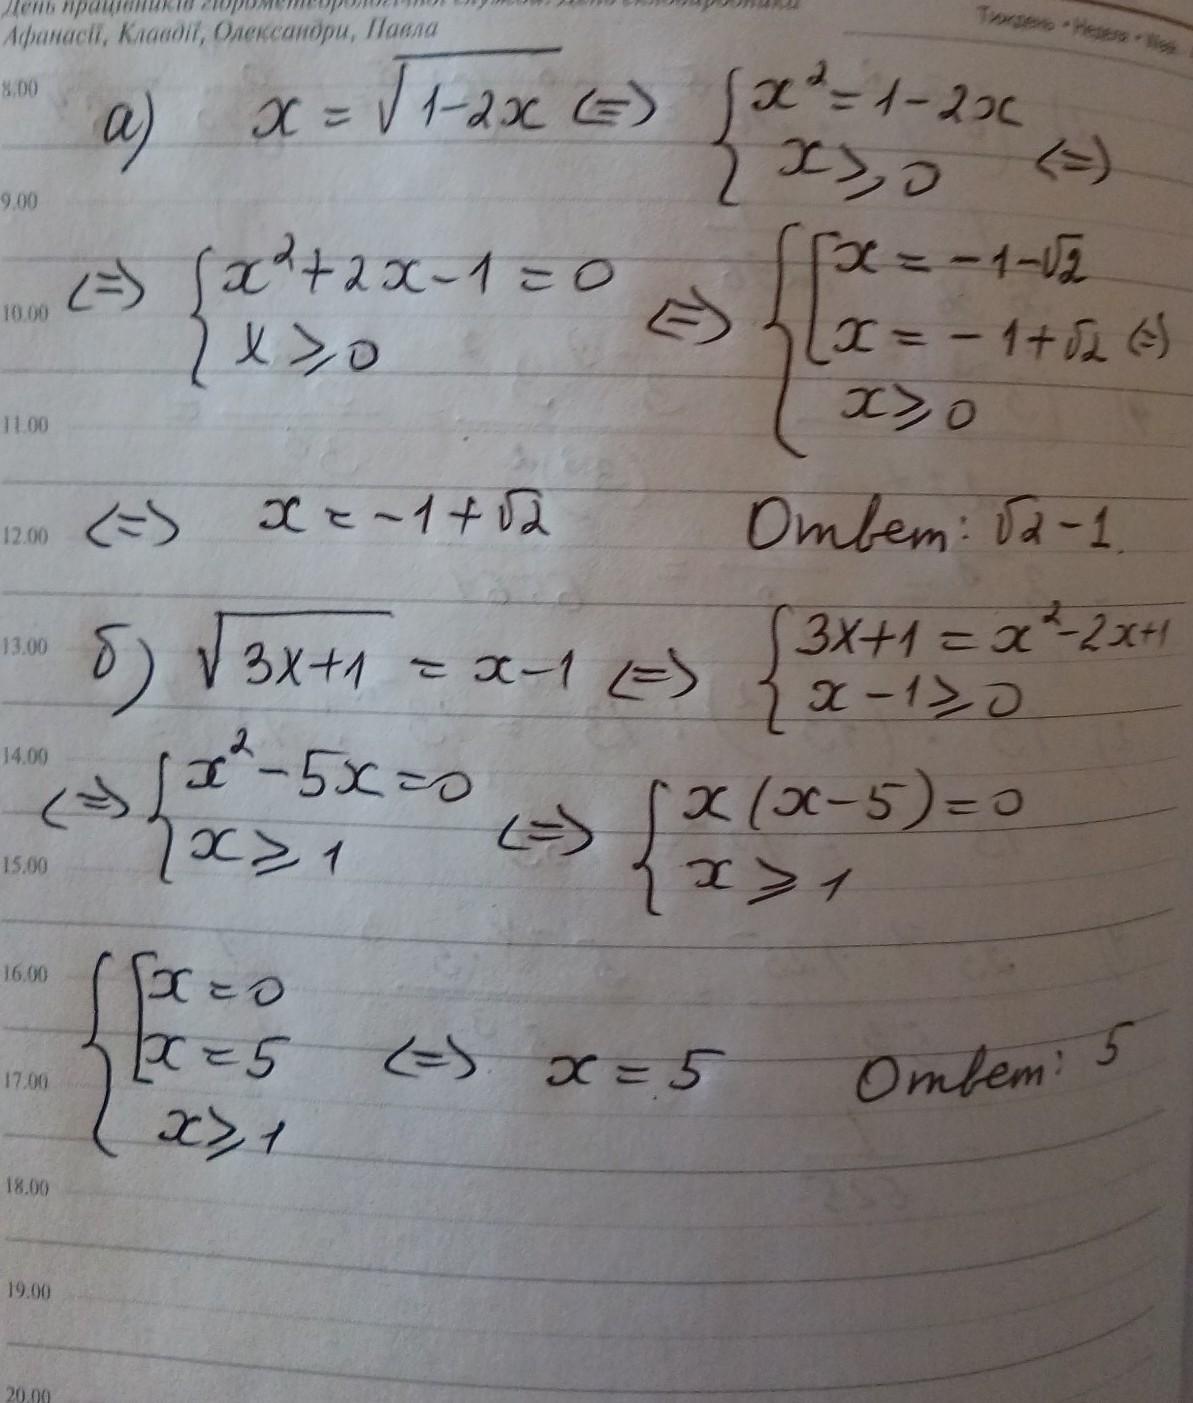 День працівників гідрометеорологічної служби.
Афанасії, Клавдії, Олександри, Павла
Тиждень • Неделя • Week
8.00
а) x = √(1-2x) <=> { x² = 1-2x
x ≥ 0 <=>
9.00
<=> { x² + 2x - 1 = 0
x ≥ 0
<=> { [ x = -1-√2
x = -1+√2 <=>
x ≥ 0
10.00
11.00
<=> x = -1+√2 Ответ: √2-1.
12.00
13.00
б) √(3x+1) = x-1 <=> { 3x+1 = x²-2x+1
x-1 ≥ 0
14.00
<=> { x² - 5x = 0
x ≥ 1
<=> { x(x-5) = 0
x ≥ 1
15.00
16.00
{ [ x = 0
x = 5 <=> x = 5 Ответ: 5
x ≥ 1
17.00
18.00
19.00
20.00